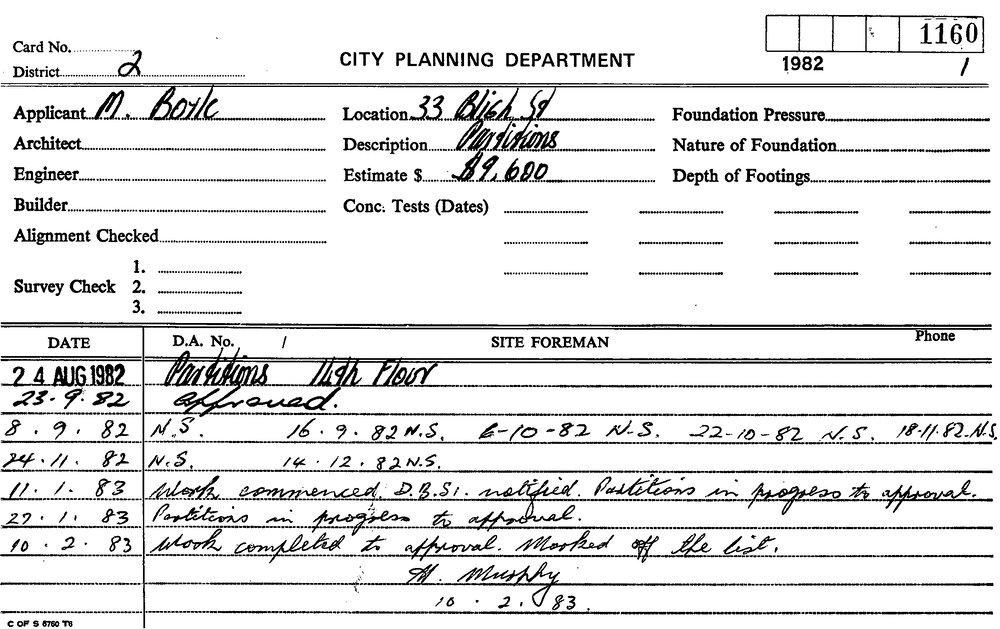 1160
Card No.
CITY PLANNING DEPARTMENT
1982 /
District 2
Applicant M. Boyle Location 33 Bligh St Foundation Pressure
Architect Description Partitions Nature of Foundation
Engineer Estimate $ $9,600 Depth of Footings
Builder Conc. Tests (Dates)
Alignment Checked
1.
Survey Check 2.
3.
DATE D.A. No. / SITE FOREMAN Phone
24 AUG 1982 Partitions 11th Floor
23.9.82 approved.
8.9.82 N.S. 16.9.82 N.S. 6-10-82 N.S. 22-10-82 N.S. 18.11.82.N.S.
24.11.82 N.S. 14.12.82 N.S.
11.1.83 Work commenced. D.B.S. notified. Partitions in progress to approval.
27.1.83 Partitions in progress to approval.
10.2.83 Work completed to approval. Marked off the list.
Murphy
10.2.83.
C OF S 6760 T6